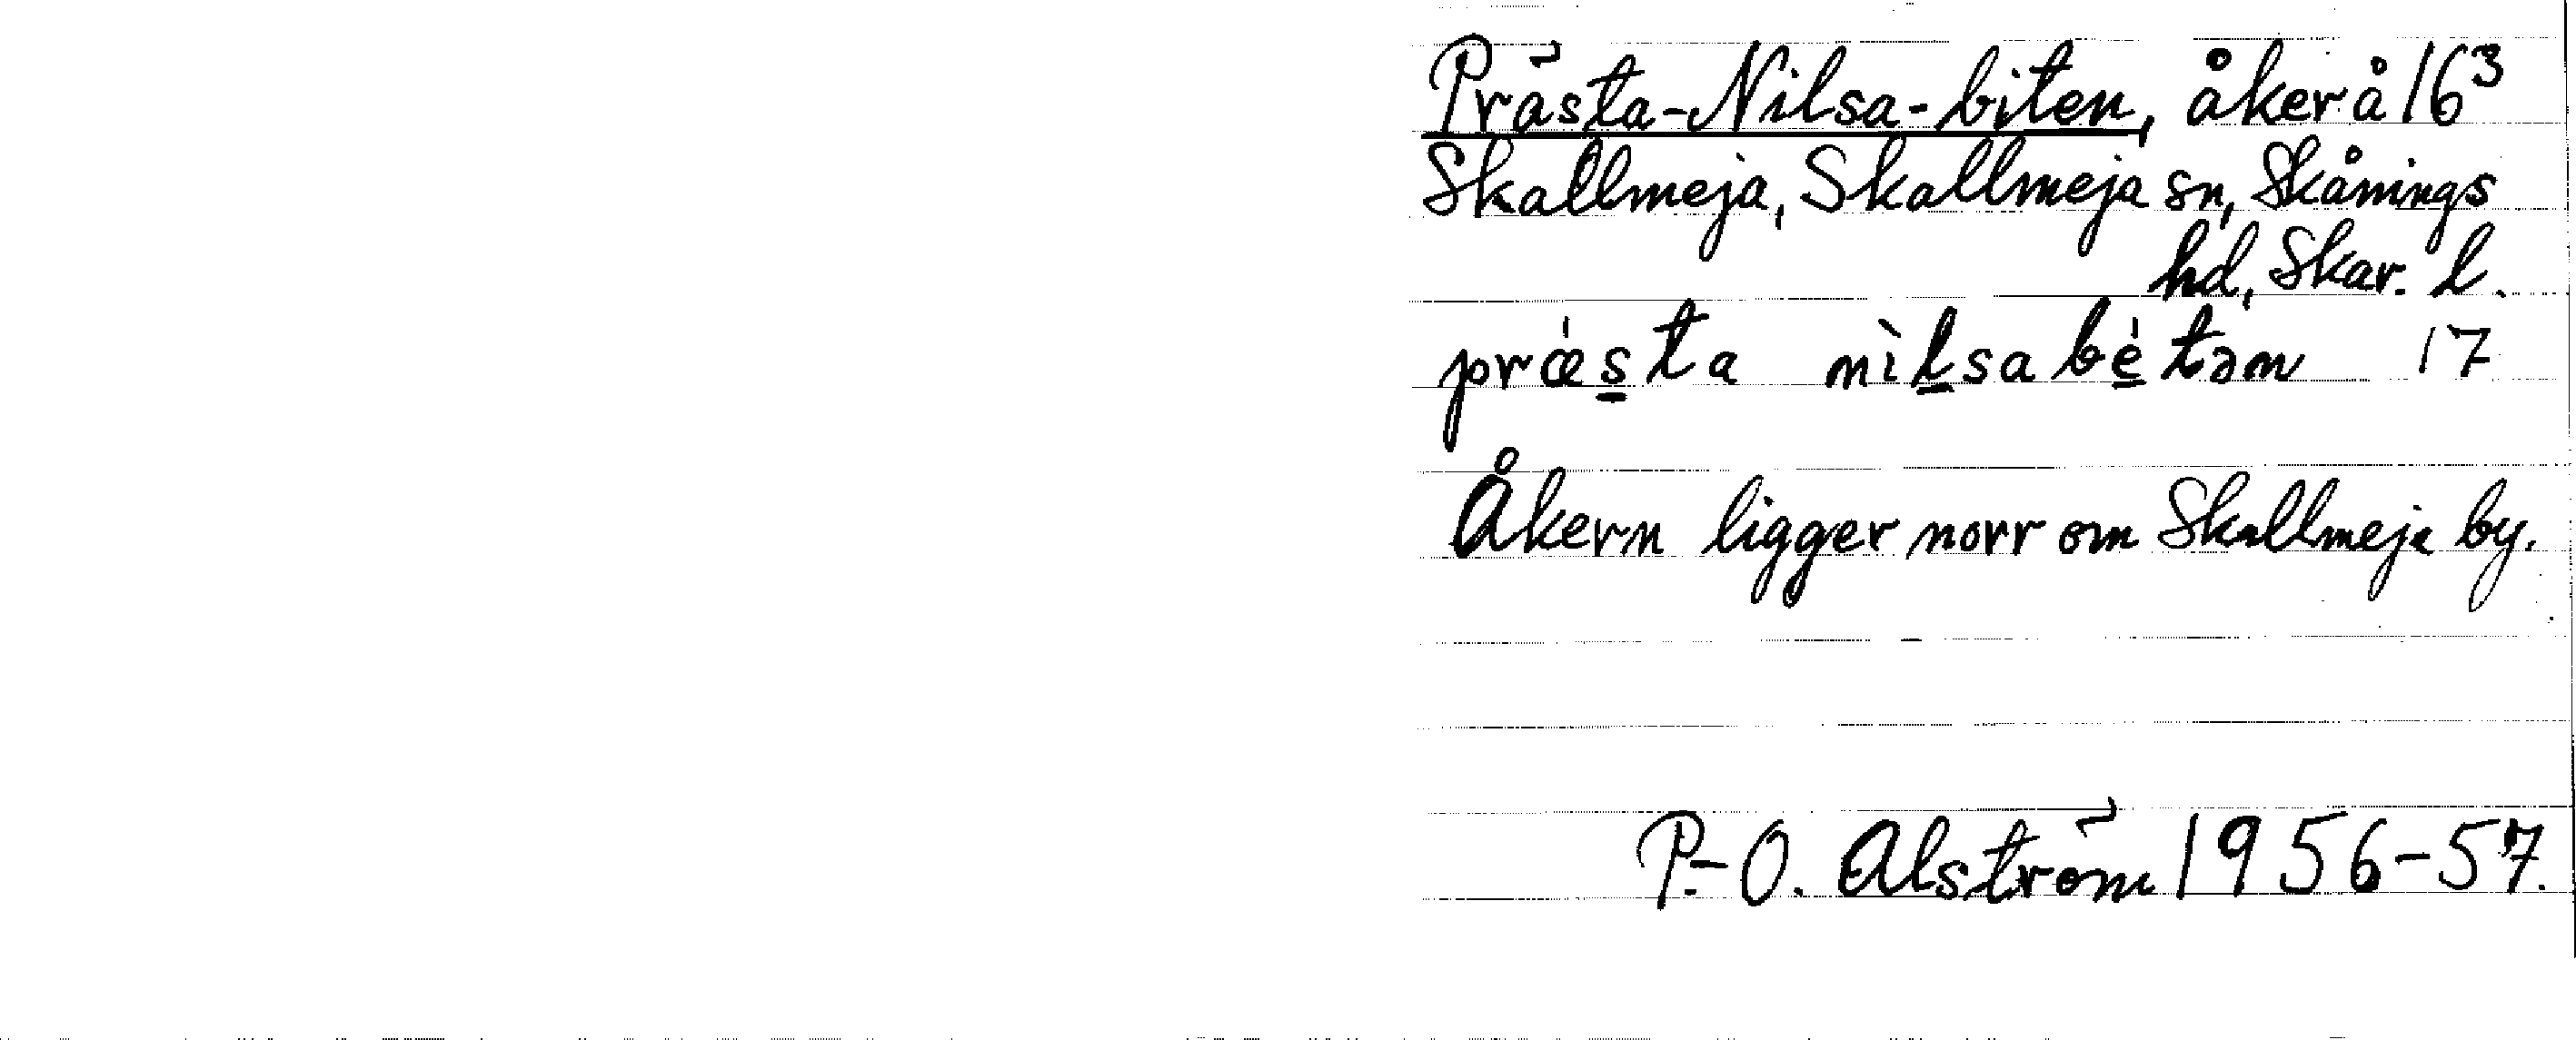 Prästa-Nilsa-biten, åker å 16³
Skallmeja, Skallmeja sn, Skånings
hd, Skar. l.
præ̀s̲ta nìl̲sabè̲tən 17
Åkern ligger norr om Skallmeja by.
P.-O. Alström 1956-57.